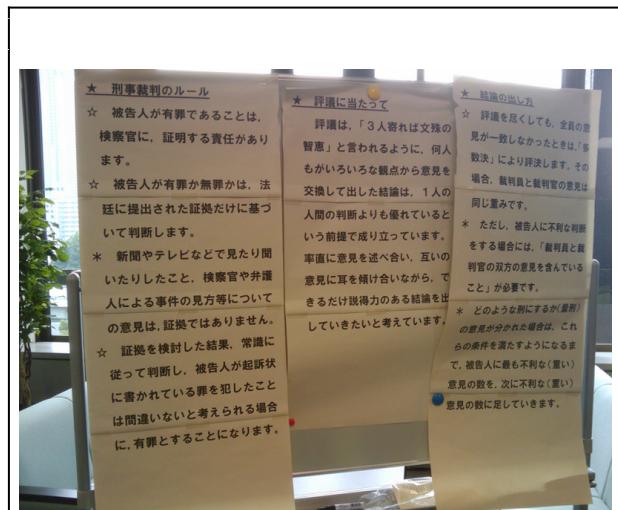 ★ 刑事裁判のルール
☆ 被告人が有罪であることは、
検察官に、証明する責任があり
ます。
☆ 被告人が有罪か無罪かは、法
廷に提出された証拠だけに基づ
いて判断します。
＊ 新聞やテレビなどで見たり聞
いたりしたこと、検察官や弁護
人による事件の見方等について
の意見は、証拠ではありません。
☆ 証拠を検討した結果、常識に
従って判断し、被告人が起訴状
に書かれている罪を犯したこと
は間違いないと考えられる場合
に、有罪とすることになります。
★ 評議に当たって
評議は、「３人寄れば文殊の
智恵」と言われるように、何人
もがいろいろな観点から意見を
交換して出した結論は、１人の
人間の判断よりも優れていると
いう前提で成り立っています。
率直に意見を述べ合い、互いの
意見に耳を傾け合いながら、で
きるだけ説得力のある結論を出
していきたいと考えています。
★ 結論の出し方
☆ 評議を尽くしても、全員の意
見が一致しなかったときは、「多
数決」により評決します。その
場合、裁判員と裁判官の意見は
同じ重みです。
＊ ただし、被告人に不利な判断
をする場合には、「裁判員と裁
判官の双方の意見を含んでいる
こと」が必要です。
＊ どのような刑にするか（量刑）
の意見が分かれた場合は、これ
らの条件を満たすようになるま
で、被告人に最も不利な（重い）
意見の数を、次に不利な（重い）
意見の数に足していきます。